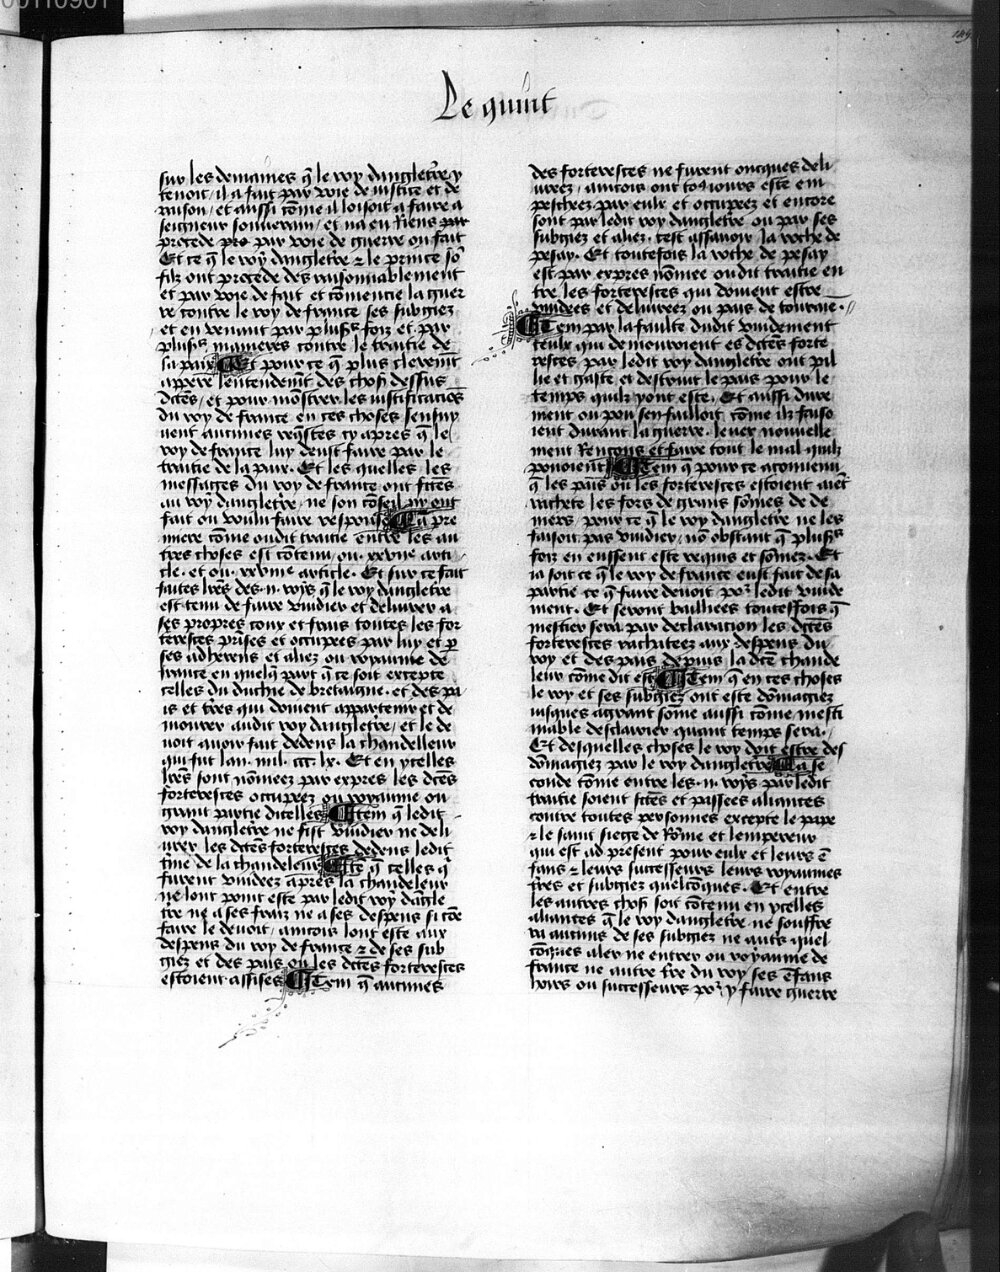 00110901
149
Le quint
sur les demaines q̄ le roy dangletr̄e y
tenoit / il a fait par voie de iustice et de
raison / et aussi cōme il loisoit a faire a
seigneur souuerain / et na en riens par
procede pro par voie de guerre ou fait
Et ce q̄ le roy dangletr̄e ⁊ le prince sō
filz ont procede desraisonnablement
et par voie de fait et cōmencie la guer
re contre le roy de france ses subgiez
et en venant par plusrs foiz et par
plusrs manieres contre le traitie de
la paix Et pour ce q̄ plus clerem̄t
appere lentendem̄t des chosˢ dessus
dc̄tes / et pour mōstrer les iustificaciōs
du roy de france en ces choses sensuy
uent aucunes reqs̄tes cy apres q̄ le
roy de france luy deust faire par le
traitie de la paix. Et les quelles les
messages du roy de france ont fc̄tes
au roy dangletr̄e / ne son cōseil ny ont
fait ou voulu faire response La pre
miere cōme oudit traitie entre les au
tres choses est cōtenu ou. xxviie arti
cle. et ou. xxviiie article. Et sur ce fait
faites lr̄es des .ii. roys q̄ le roy dangletr̄e
est tenu de faire vuidier et deliurer a
ses propres coux et frais toutes les for
teresces prises et occupees par luy et p̄
ses adherens et aliez ou royaume de
france en quelq̄ part q̄ ce soit excepte
celles du duchie de bretaigne. et des pa
is et tr̄es qui doiuent appartenir et de
mourer audit roy dangletr̄e / et le de
uoit auoir fait dedens la chandelleur
qui fut lan. mil. ccc. lx. Et en ycelles
lr̄es sont nōmees par expres les dc̄tes
forteresces occupees ou royaume ou
grant partie dicelles Item q̄ ledit
roy dangletr̄e ne fist vuidier ne deli
urer les dc̄tes forteresces dedens ledit
t̄me de la chandeleur Et ce q̄ celles q̄
furent vuidees apres la chandeleur
ne lont point este par ledit roy dāgle
tr̄e ne a ses fraiz ne a ses despens si cōe
faire le deuoit / aincois lont este aux
despens du roy de france ⁊ de ses sub
giez et des pais ou les dc̄tes forteresces
estoient assises Item q̄ aucunes
des forteresces ne furent oncques deli
urees / aincois ont tousiours este em
peschees par eulx et occupees et encore
sont par ledit roy dangletr̄e ou par ses
subgiez et aliez. cest assauoir la roche de
pesay. Et toutefois la roche de pesay
est par expres nōmee oudit traitie en
tre les forteresces qui doiuent estre
vuidees et deliurees ou pais de touraine.
Item par la faulte dudit vuidement
ceulx qui demouroient es dc̄tes forte
resces par ledit roy dangletr̄e ont pil
lie et gaste et destruit le pais pour le
temps quilz y ont este. Et aussi dure
ment ou pou sen failloit cōme ilz faiso
ient durant la guerre. leuer nouuelle
ment rencons et faire tout le mal quilz
pouoient Item q̄ pour ce a conuenu
q̄ les pais ou les forteresces estoient aiēt
rachete les fors de grans sōmes de de
niers pour ce q̄ le roy dangletr̄e ne les
faisoit pas vuidier / nō obstant q̄ plusrs
foiz en eussent este requis et sōmez. Et
ia soit ce q̄ le roy de france eust fait de sa
partie ce q̄ faire deuoit por ledit vuide
ment. Et seront baillees toutesfois q̄
mestier sera par declaration les dc̄tes
forteresces rachetees aux despens du
roy et des pais depuis la dc̄te chande
leur cōme dit est Item q̄ en ces choses
le roy et ses subgiez ont este dōmagiez
iusques a grant sōme aussi cōme inesti
mable desclairier quant temps sera.
Et desquelles choses le roy doit estre des
dōmagiez par le roy dangletr̄e La se
conde cōme entre les .ii. roys par ledit
traitie soient fc̄tes et passees aliances
contre toutes personnes excepte le pape
⁊ le saint siege de Rōme et lempereur
qui est ad present pour eulx et leurs ē
fans ⁊ leurs successeurs leurs royaumes
tr̄es et subgiez quelcōques. Et entre
les autres chosˢ soit cōtenu en ycelles
aliances q̄ le roy dangletr̄e ne souffre
ra aucuns de ses subgiez ne auts̄ quel
cōques aler ne entrer ou royaume de
france ne autre tr̄e du roy ses ēfans
hoirs ou successeurs por y faire guerre